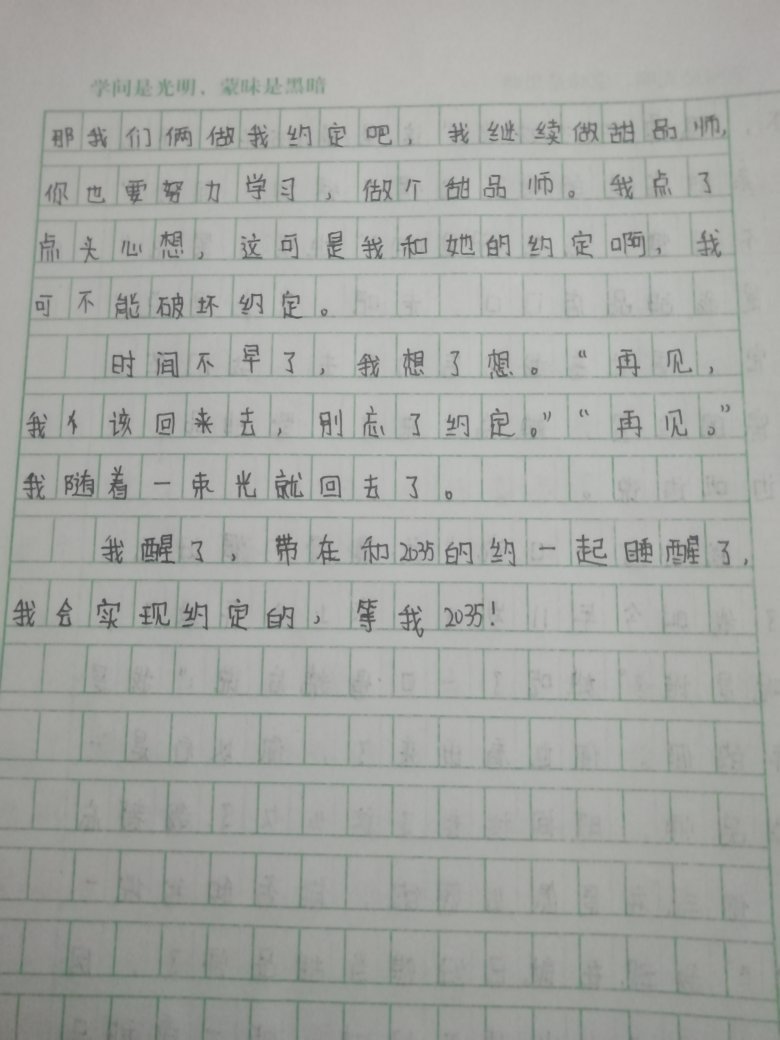 学问是光明，蒙昧是黑暗
那我们俩做我约定吧，我继续做甜品师，
你也要努力学习，做个甜品师。我点了
点头心想，这可是我和她的约定啊，我
可不能破坏约定。
时间不早了，我想了想。“再见，
我该回来去，别忘了约定。”“再见。”
我随着一束光就回去了。
我醒了，带在和2035的约一起睡醒了，
我会实现约定的，等我2035！